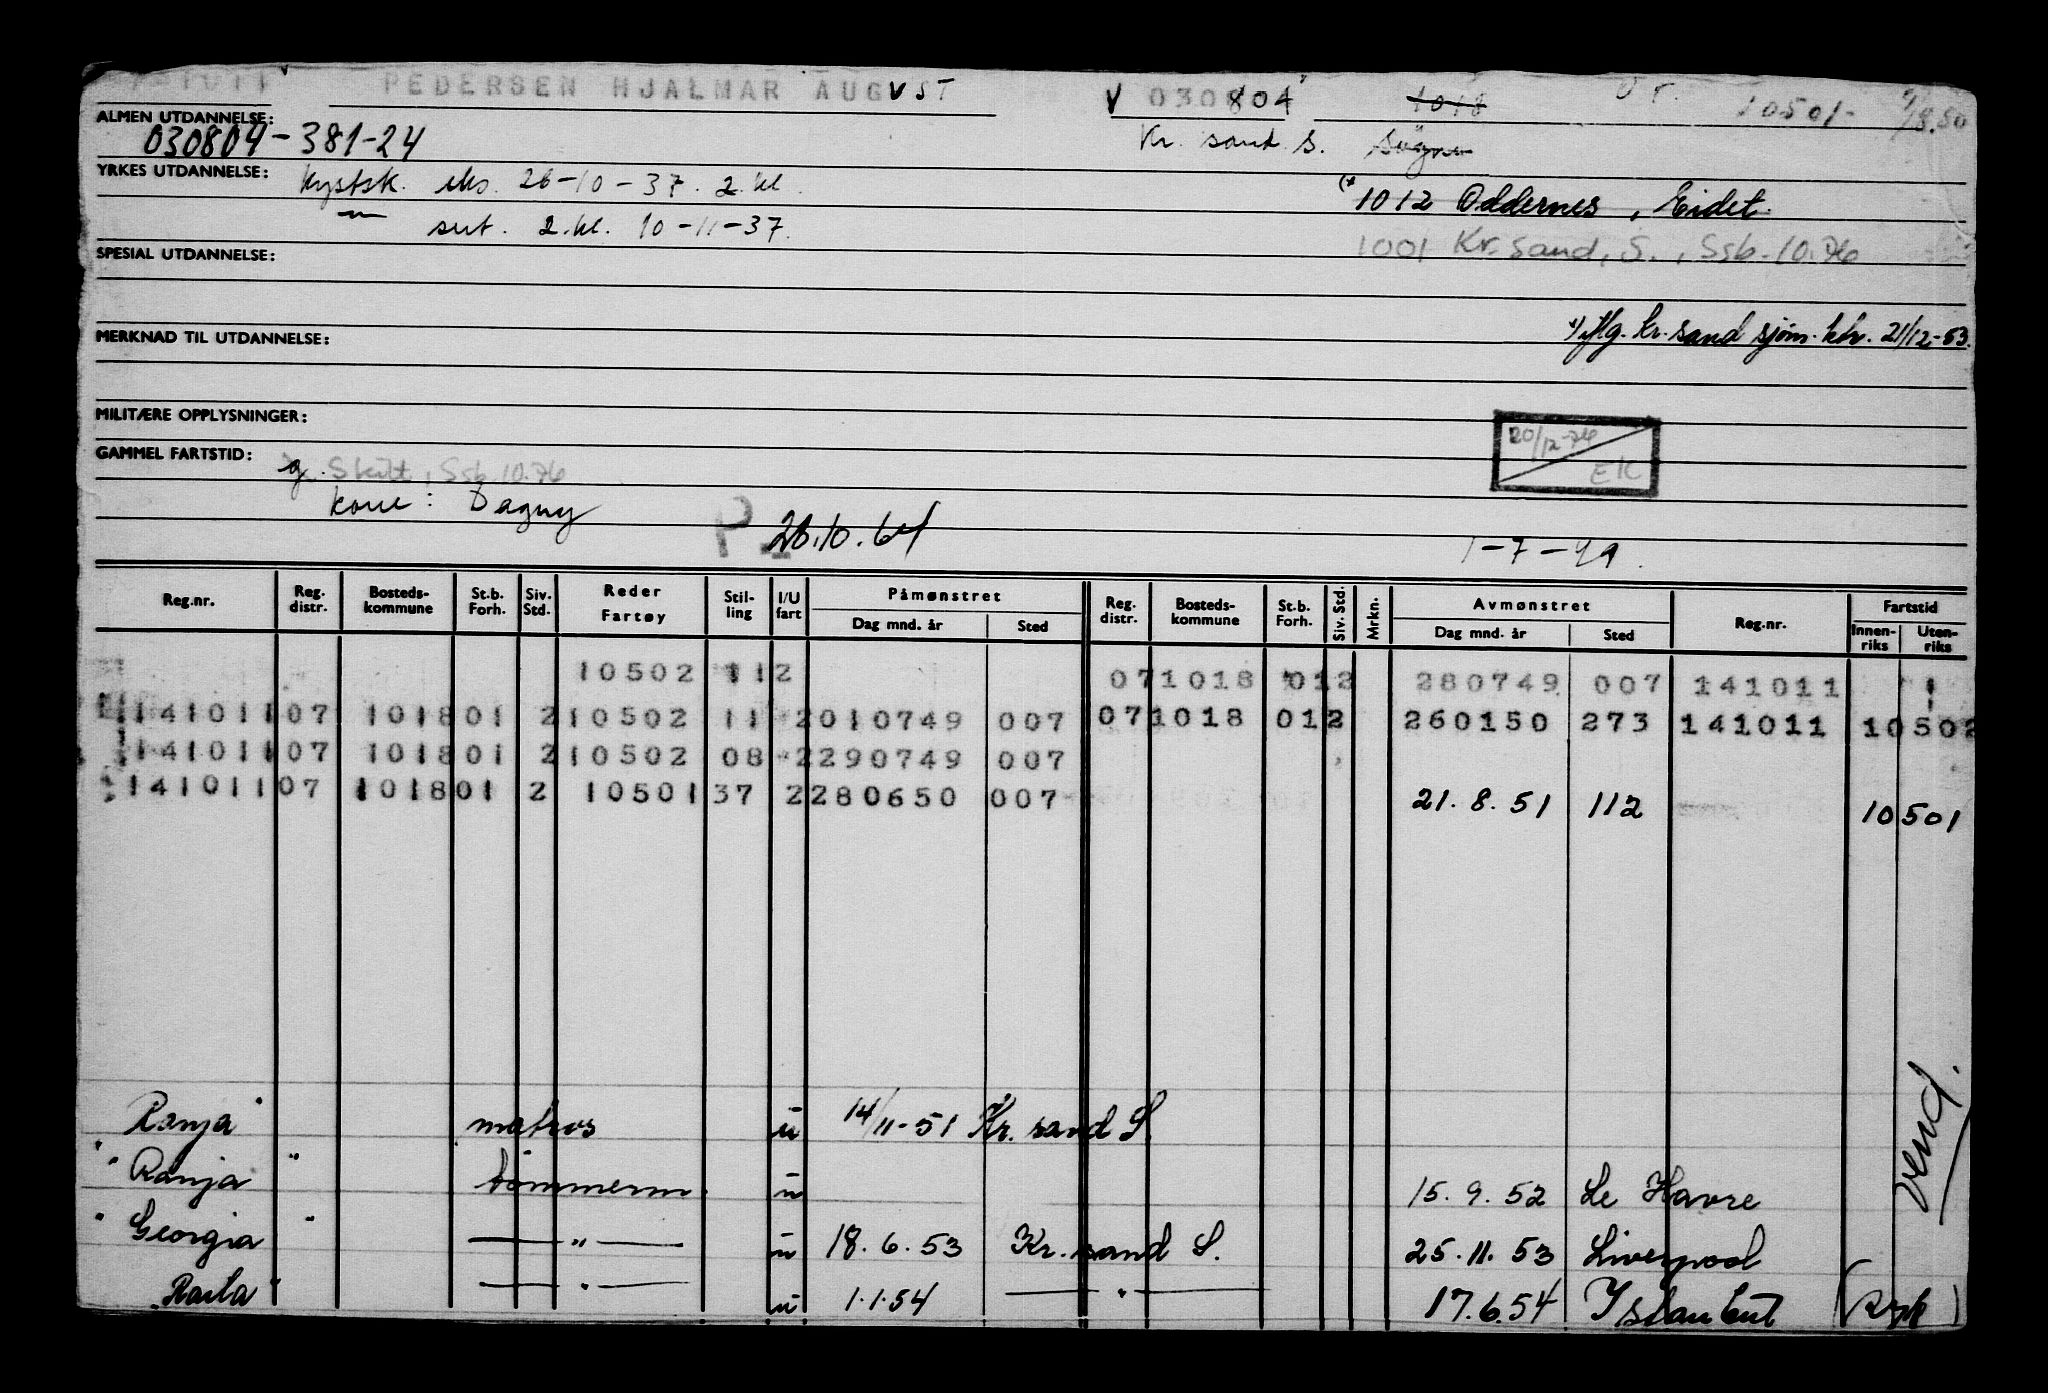 1011 PEDERSEN HJALMAR AUGVST V 030804 1018 10501- 1/8.50
ALMEN UTDANNELSE: 030804-381-24 Kr. sand. S. Søgne
YRKES UTDANNELSE: Kystsk. eks. 26-10-37. 2.kl. (* 1012 Oddernes, Eidet.
—"— sert. 2.kl. 10-11-37. 1001 Kr.sand, S., Ssb. 10.76
SPESIAL UTDANNELSE:
MERKNAD TIL UTDANNELSE: Kr.sand sjøm. ktr. 21/12-53.
MILITÆRE OPPLYSNINGER:
20/12-76 EK
GAMMEL FARTSTID: g. Skilt, Ssb. 10.76
kone: Dagny
P 28.10.64 1-7-49.
Reg.nr. Reg. distr. Bosteds-kommune St.b. Forh. Siv. Std. Reder Fartøy Stil-ling I/U fart Påmønstret Dag mnd. år Sted Reg. distr. Bosteds-kommune St.b. Forh. Siv. Std. Mrkn. Avmønstret Dag mnd. år Sted Reg.nr. Fartstid Innen-riks Uten-riks
10502 11 2 07 1018 01 2 280749 007 141011
141011 07 1018 01 2 10502 11 2 010749 007 07 1018 01 2 260150 273 141011 10502
141011 07 1018 01 2 10502 08 2 290749 007
141011 07 1018 01 2 10501 37 2 280650 007 21.8.51 112 10501
"Ranja" matros u 14/11-51 Kr.sand S.
"Ranja" tømmerm. u 15.9.52 Le Havre
"Georgia" —"— u 18.6.53 Kr.sand S. 25.11.53 Liverpool
"Raila" —"— u 1.1.54 —"— 17.6.54 Istanbul (syk)
vend.